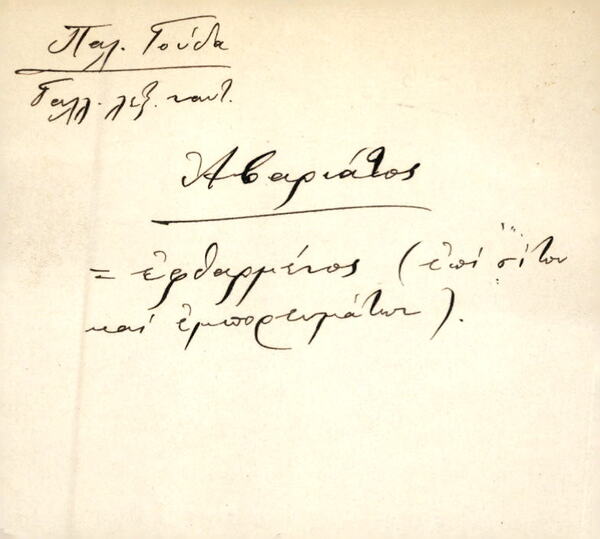 Παλ. Γούδα
Γαλλ. λεξ. ναυτ.
Ἀβαριάτος
= ἐφθαρμένος (ἐπί σίτου
καί ἐμπορευμάτων).